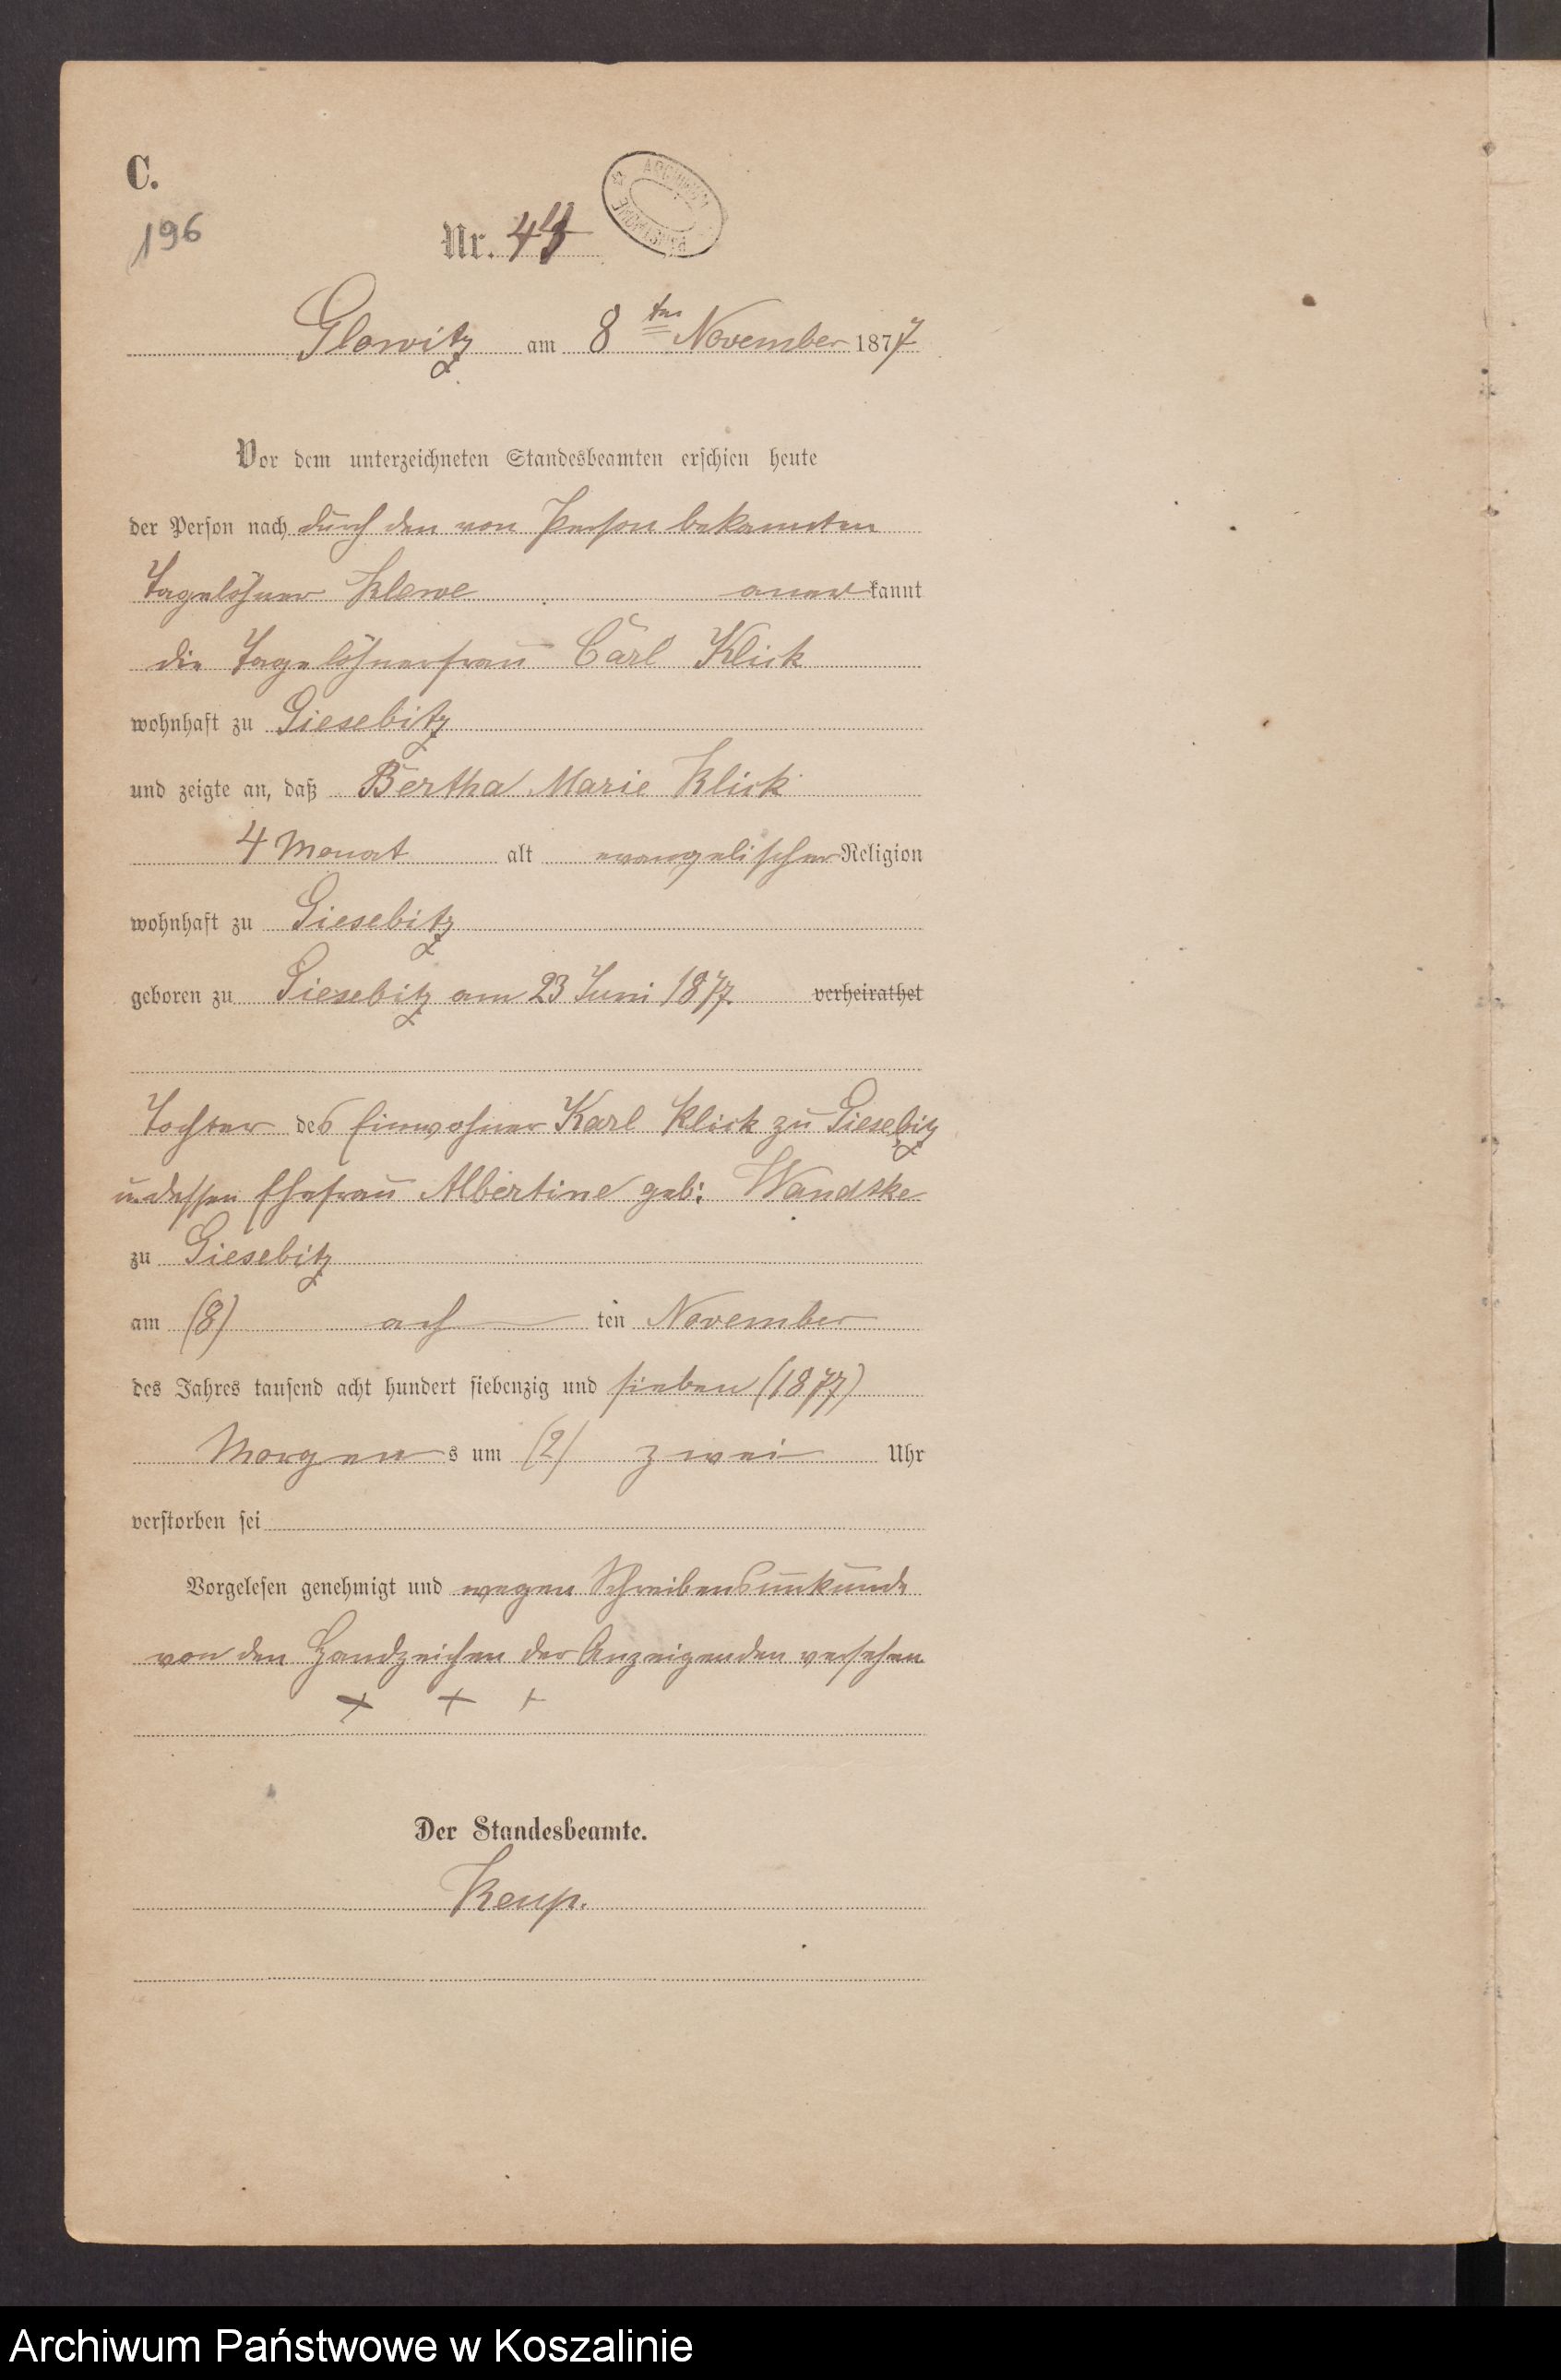 C.
196
Nr. 44
ARCHIWUM PAŃSTWOWE
Glowitz am 8ten November 1877
Vor dem unterzeichneten Standesbeamten erschien heute
der Person nach durch den von Person bekannten
Tagelöhner Klewe anerkannt
die Tagelöhnerfrau Carl Klick
wohnhaft zu Giesebitz
und zeigte an, daß Bertha Marie Klick
4 Monat alt evangelischer Religion
wohnhaft zu Giesebitz
geboren zu Giesebitz am 23 Juni 1877. verheirathet
Tochter des Einwohner Karl Klick zu Giesebitz
u. dessen Ehefrau Albertine geb: Wandtke
zu Giesebitz
am (8) achten November
des Jahres tausend acht hundert siebenzig und sieben (1877)
Morgens um (2) zwei Uhr
verstorben sei
Vorgelesen genehmigt und wegen Schreibensunkunde
von den Handzeichen der Anzeigenden versehen
+ + +
Der Standesbeamte.
Keup.
Archiwum Państwowe w Koszalinie